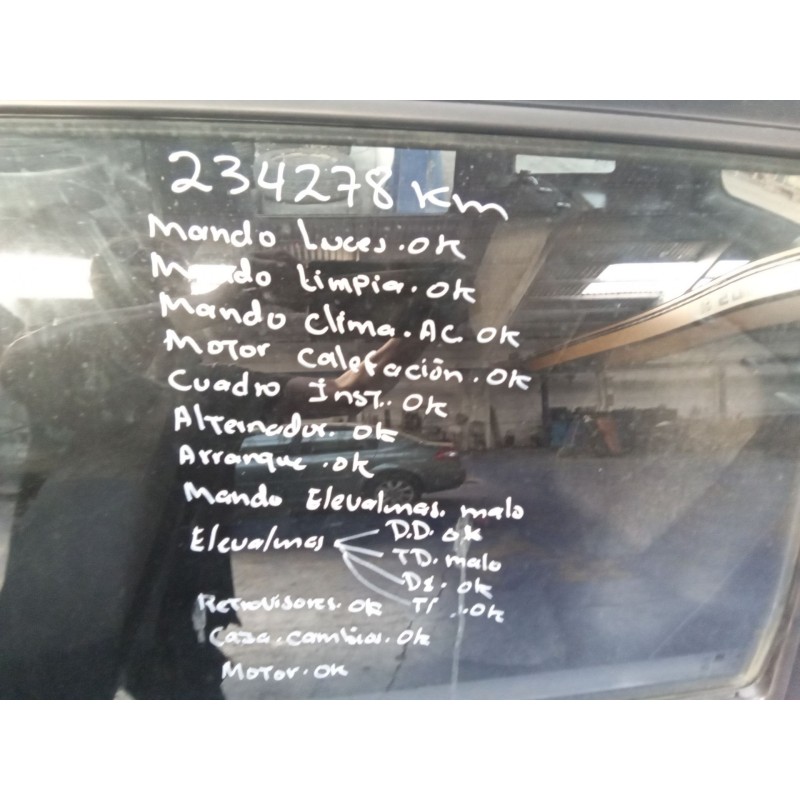 234278 km
Mando luces. ok
Mando limpia. ok
Mando clima. AC ok
Motor calefación. ok
Cuadro Inst.. ok
Alternador. ok
Arranque. ok
Mando Elevalunas. malo
Elevalunas D.D. ok
TD. malo
DI. ok
TI. ok
Retrovisores. ok
Caja. cambia. ok
Motor. ok